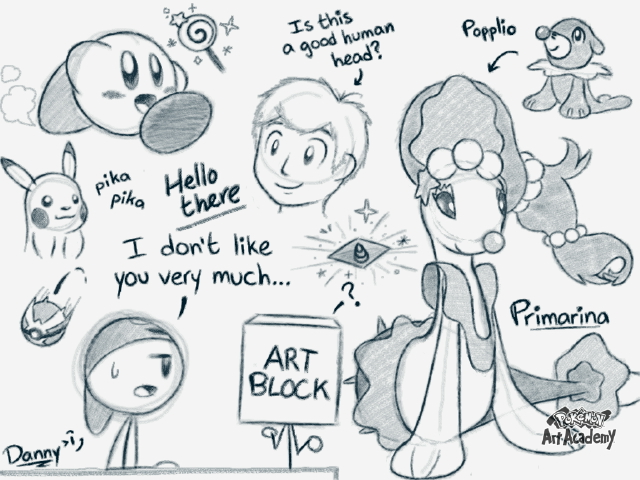 Is this
a good human
head?
Popplio
pika
pika
Hello
there
I don't like
you very much...
?
Primarina
ART
BLOCK
POKéMON
Art Academy
Danny